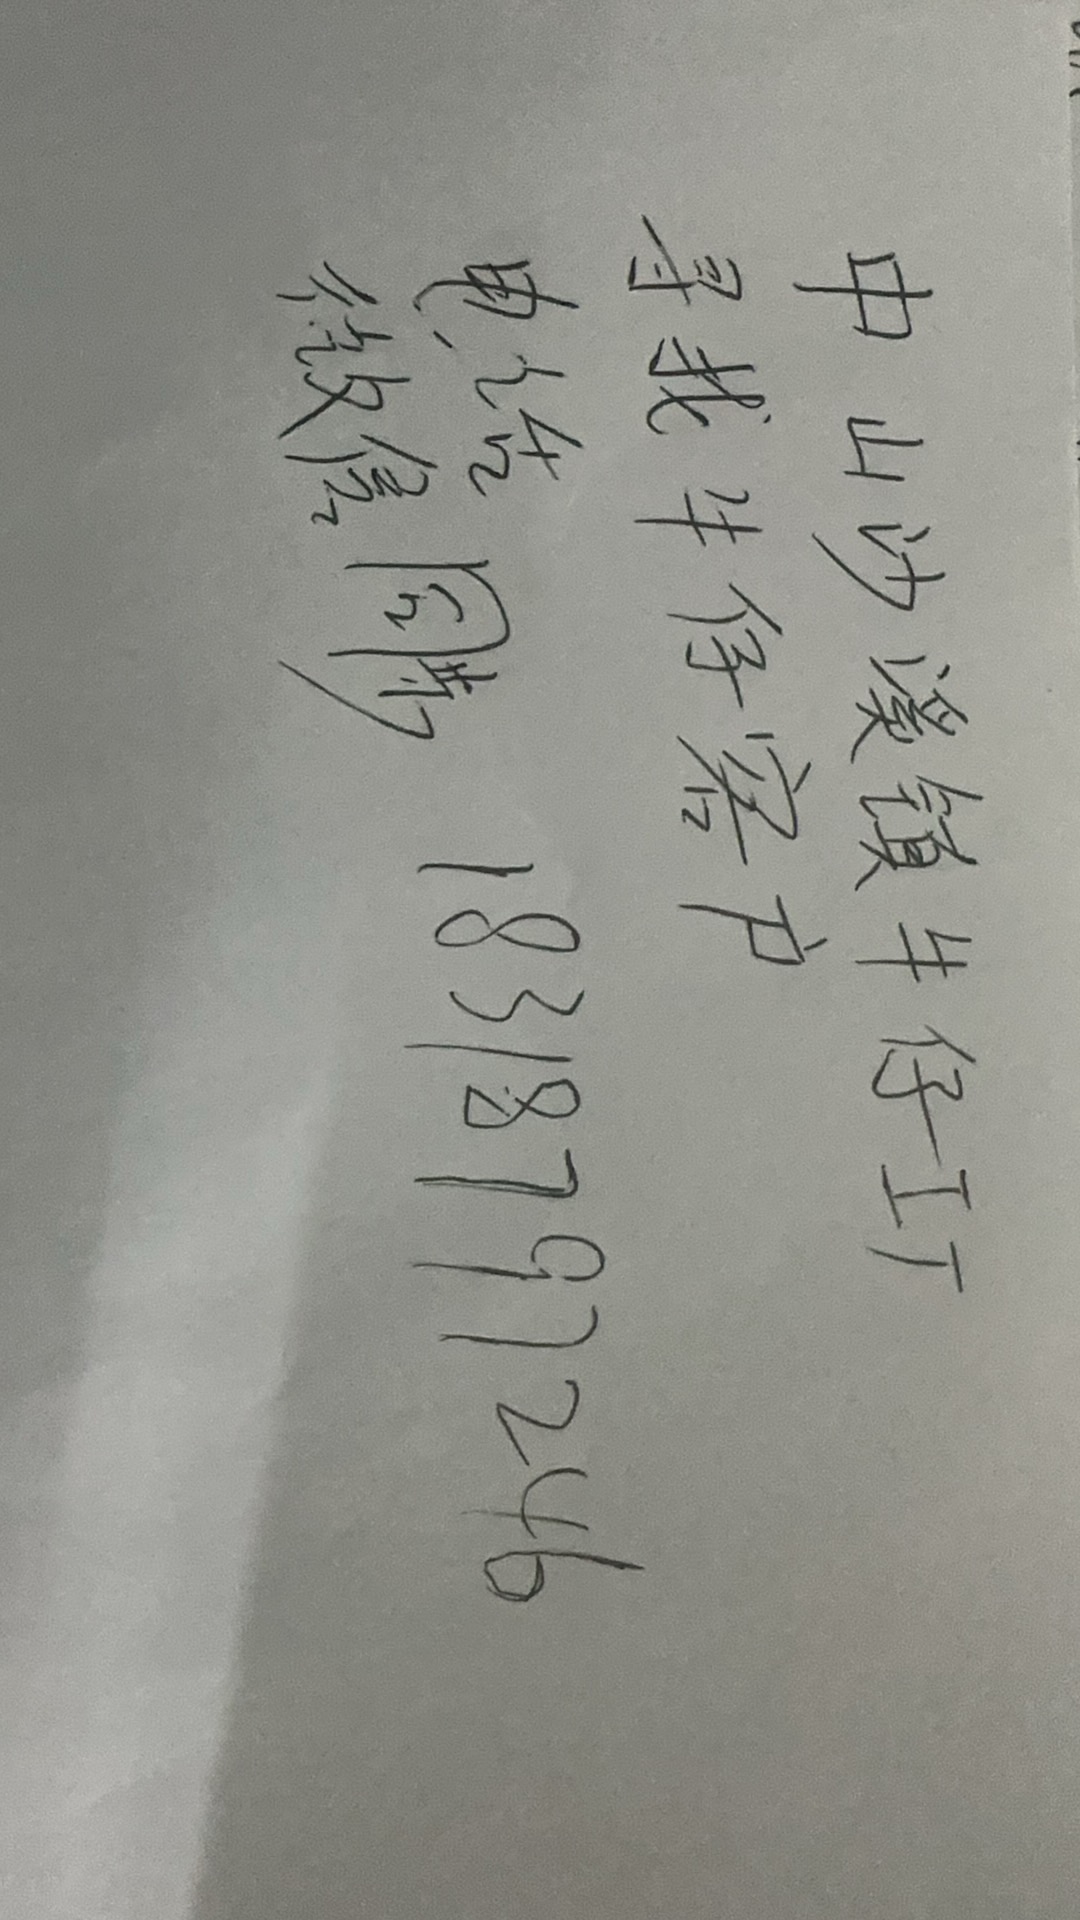 中山沙溪镇牛仔工厂
寻找牛仔客户
电话
微信同号 18318797246